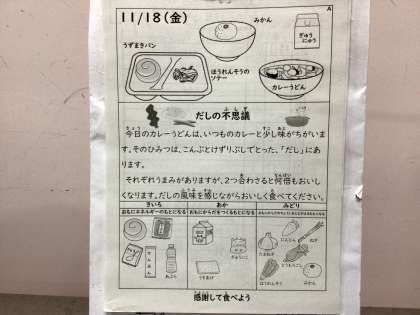 11/18(金)
A
みかん
ぎゅうにゅう
うずまきパン
ほうれんそうのソテー
カレーうどん
だしの不思議
今日のカレーうどんは、いつものカレーと少し味がちがいま
す。そのひみつは、こんぶとけずりぶしでとった、「だし」にあ
ります。
それぞれうまみがありますが、2つ合わさると何倍もおいし
くなります。だしの風味を感じながらおいしく食べてください。
きいろ
あか
みどり
おもにエネルギーのもとになる
おもにからだをつくるもとになる
ぎゅうにく
うすあげ
でんぷん
あぶら
にんじん
ねぎ
たまねぎ
とうもろこし
ほうれんそう
みかん
感謝して食べよう